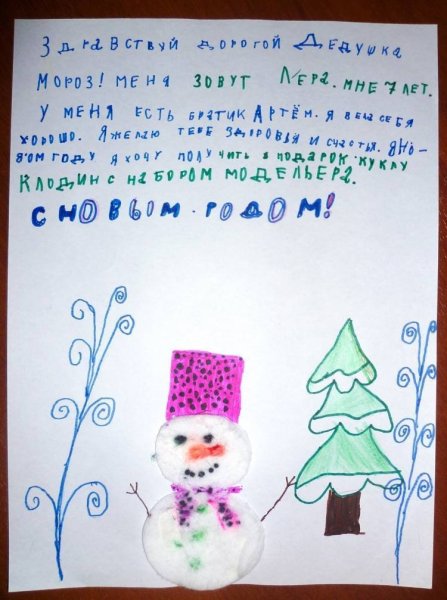 Здравствуй дорогой Дедушка
Мороз! меня зовут Лера. мне 7 лет.
У меня есть братик Артём. Я вела себя
хорошо. Я желаю тебе здоровья и счастья. Я но-
вом году я хочу получить в подарок куклу
Клодин с набором модельера.
С НОВЫМ ГОДОМ!